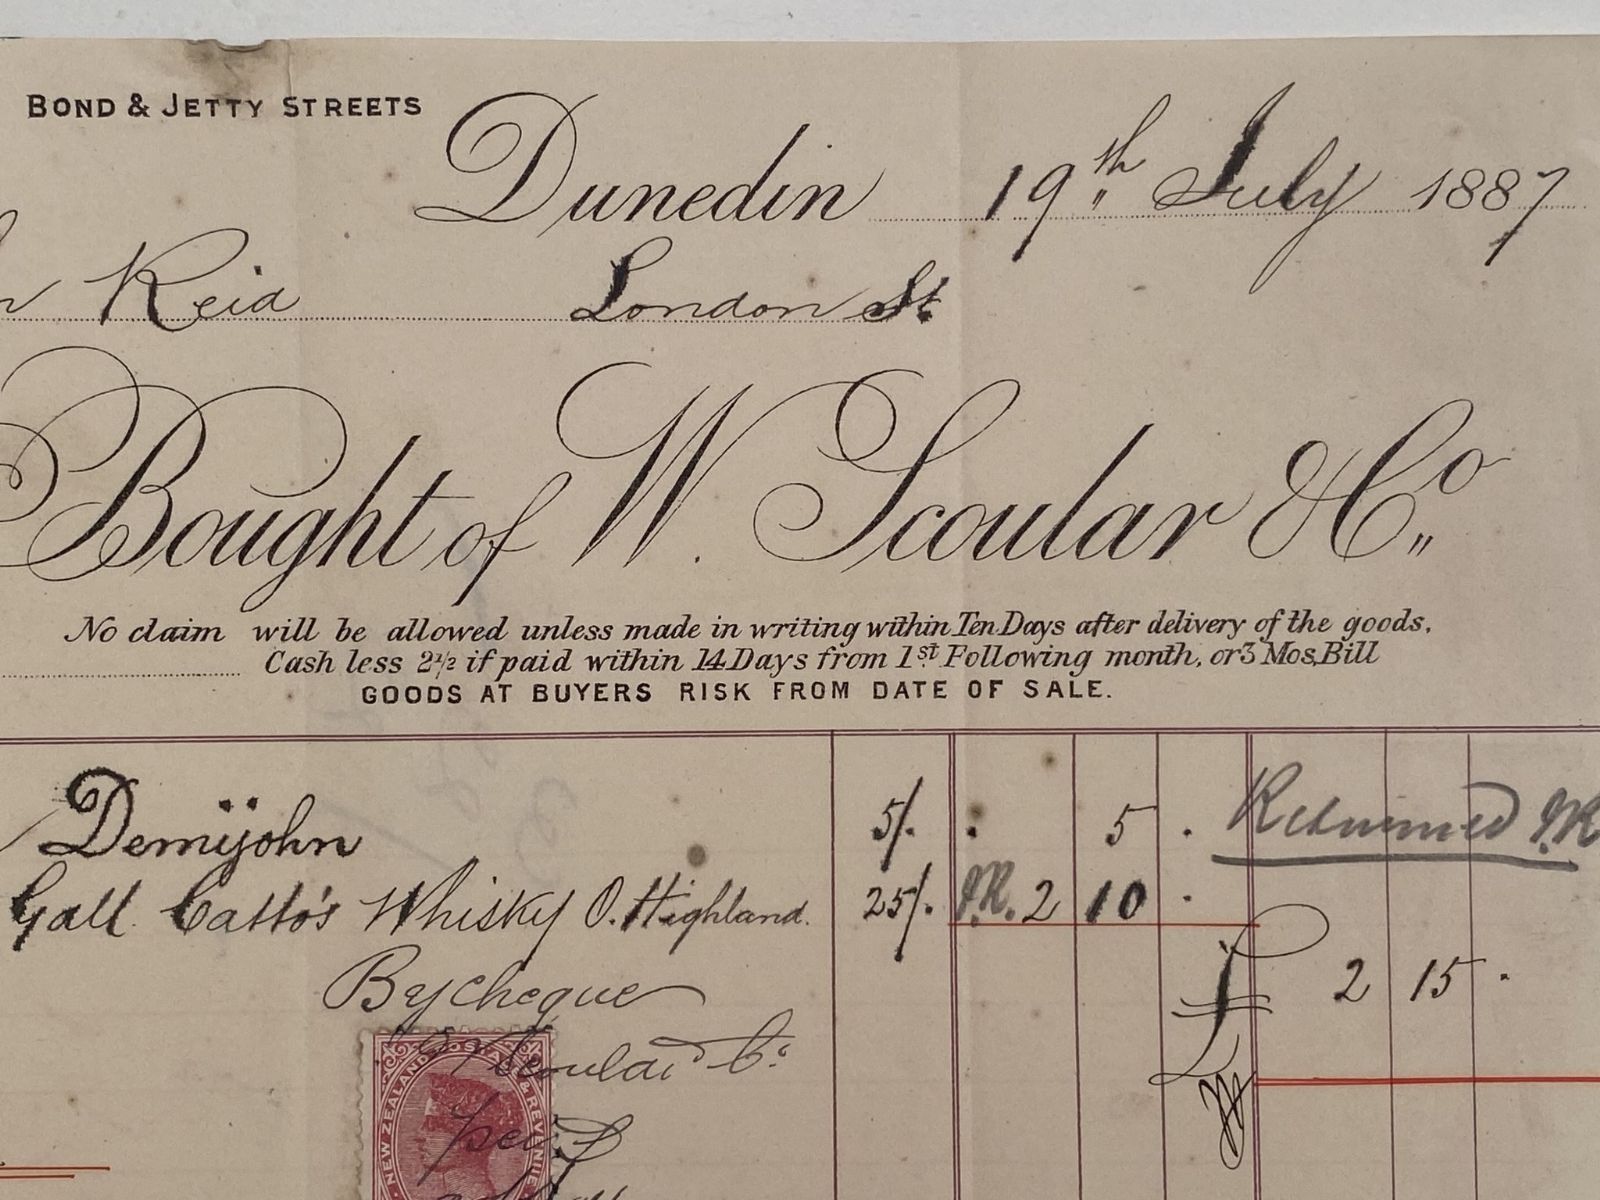 BOND & JETTY STREETS
Dunedin 19th July 1887
Reid London St.
Bought of W. Scoular & Co.
No claim will be allowed unless made in writing within Ten Days after delivery of the goods.
Cash less 2 1/2 if paid within 14 Days from 1st Following month, or 3 Mos. Bill
GOODS AT BUYERS RISK FROM DATE OF SALE.
Demijohn 5/. . 5 . Returned J.R
Gall Catto's Whisky O. Highland. 25/. J.R. 2 10 .
£ 2 15 .
By cheque
Scoular Co
NEW ZEALAND POSTAGE & REVENUE
per